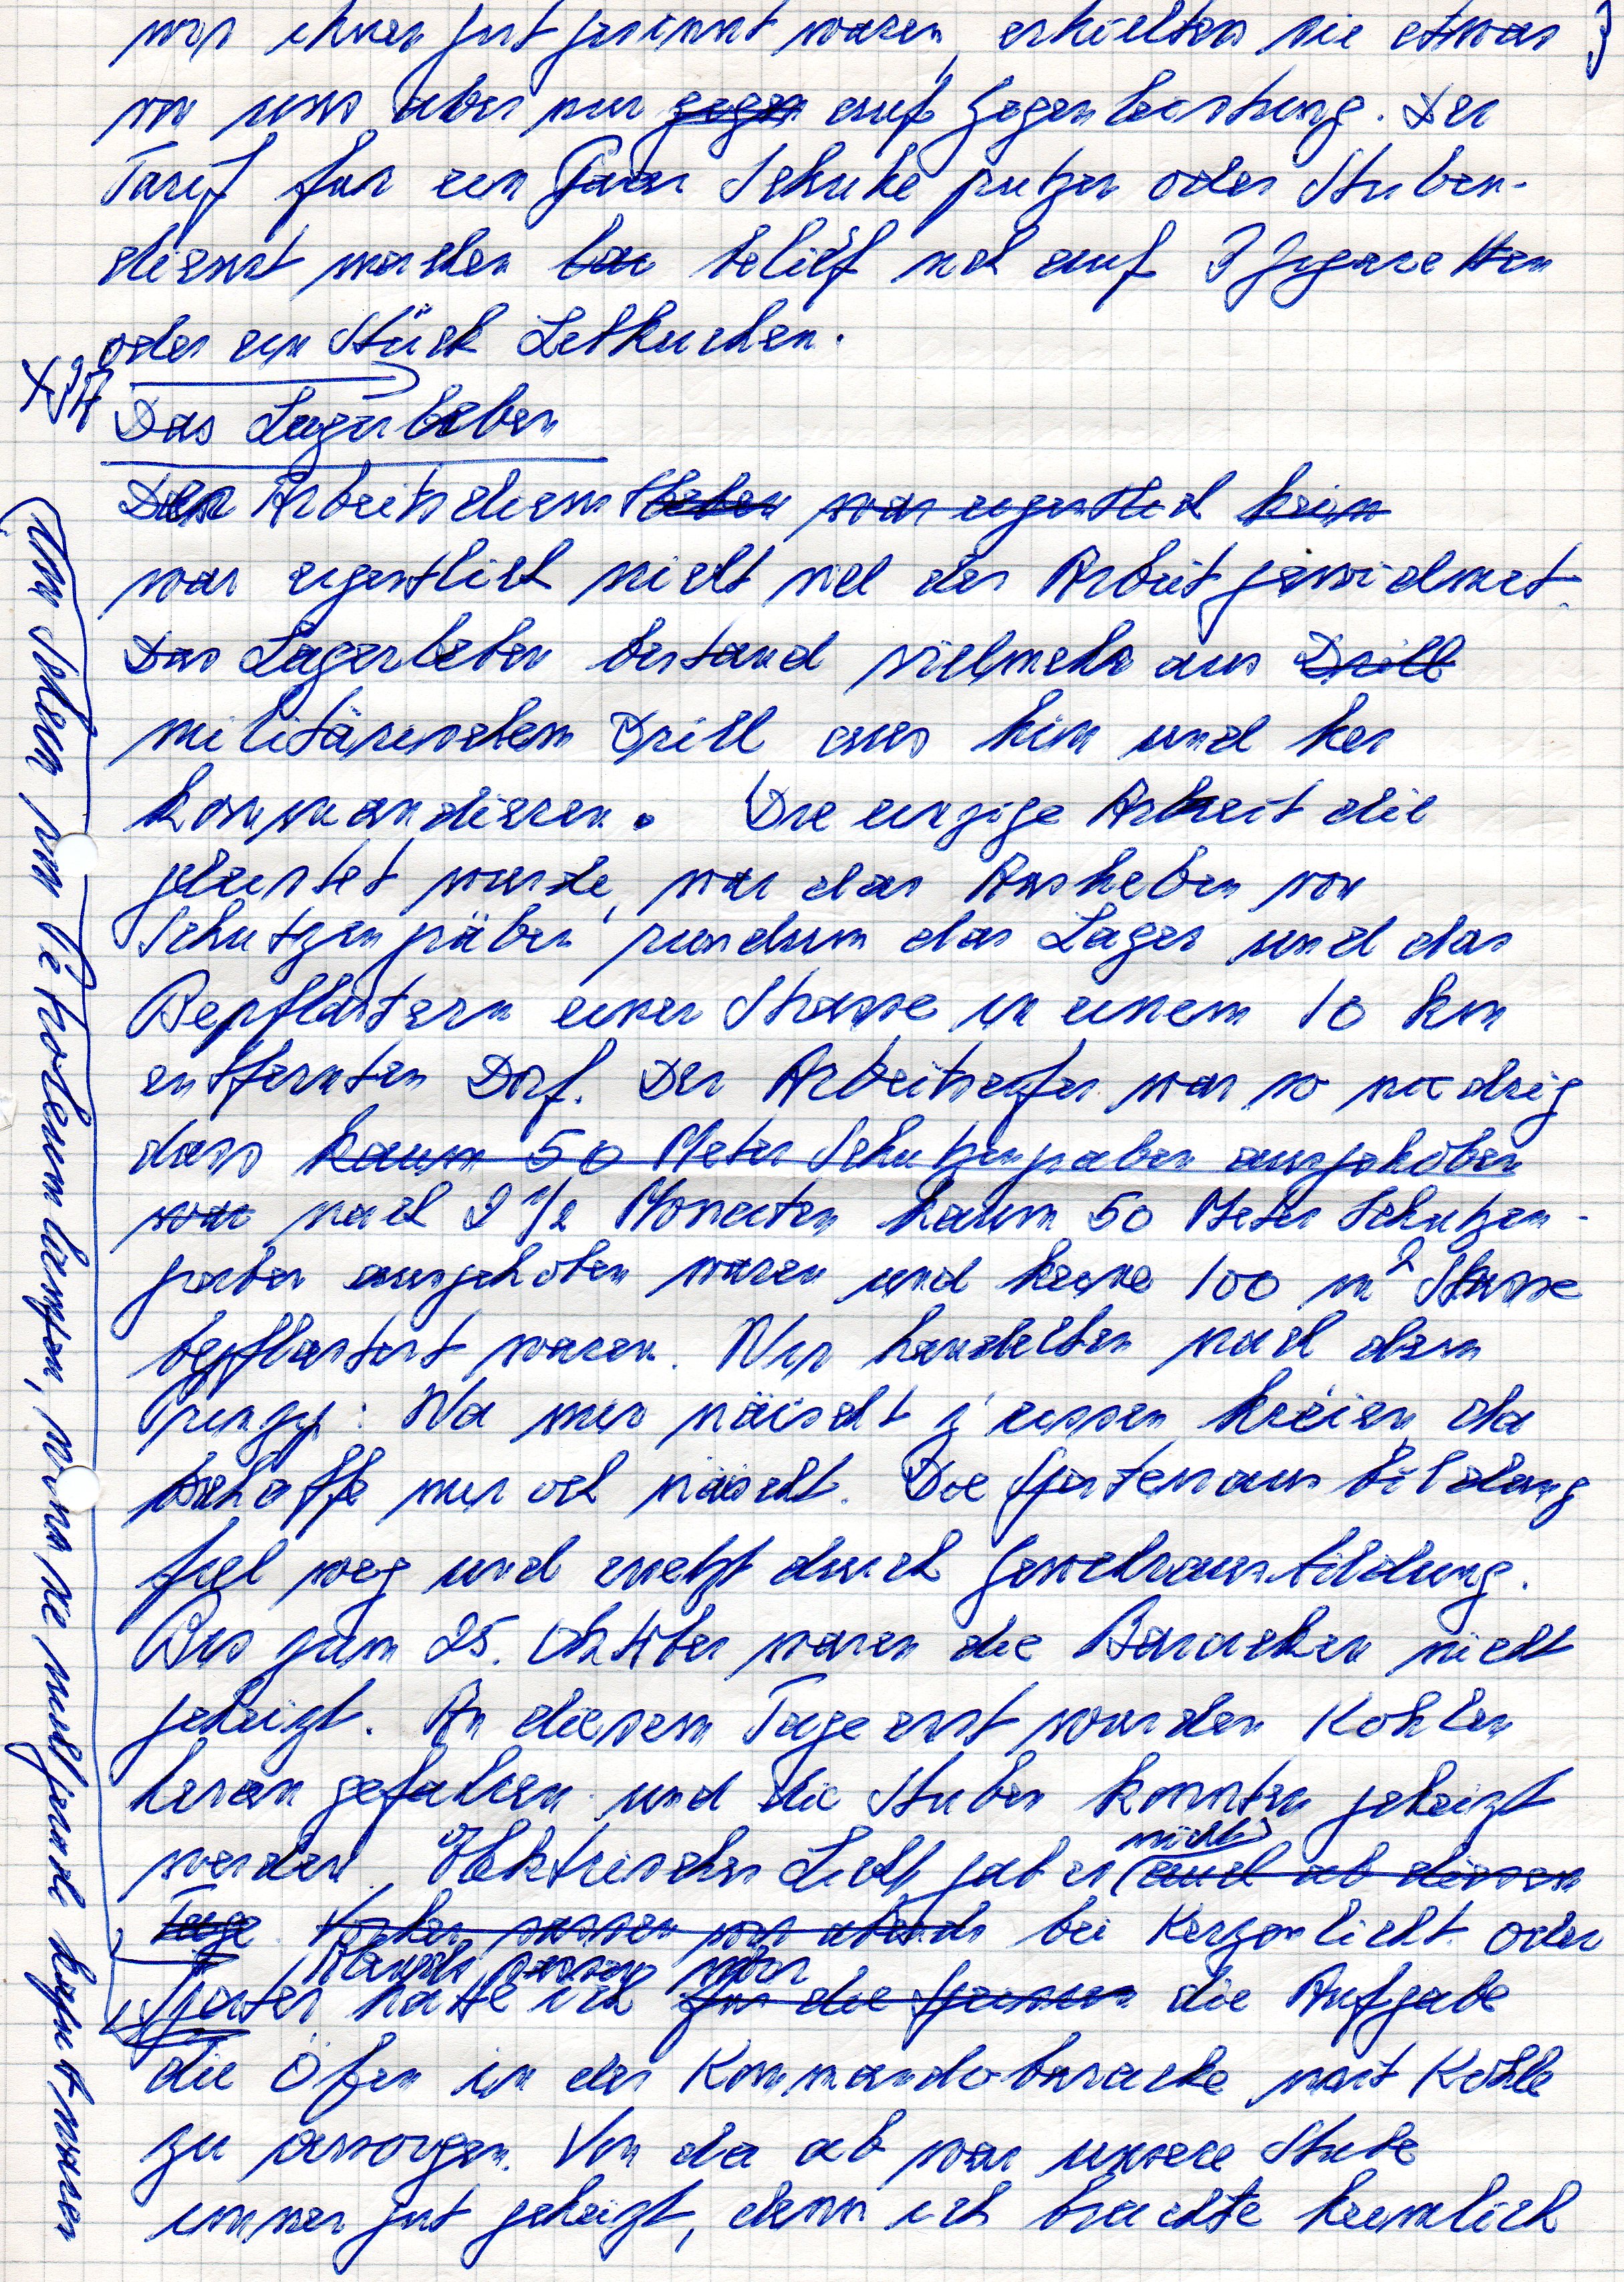 wir ihnen gut gesinnt waren, erhielten sie etwas
von uns aber nur gegen auf Gegenleistung. Der
Tarif für ein Paar Schuhe putzen oder Stuben-
dienst machen belief sich auf 3 Zigaretten
oder ein Stück Lebkuchen.
Das Lagerleben
Der Arbeitsdienstleben war eigentlich kein
war eigentlich nicht viel der Arbeit gewidmet.
Das Lagerleben bestand vielmehr aus Drill
militärischem Drill aus hin und her
kommandieren. Die einzige Arbeit die
geleistet wurde, war das Ausheben von
Schutzengräben rundum das Lager und das
Bepflastern einer Strasse in einem 10 km
entfernten Dorf. Der Arbeitseifer war so niedrig
dass kaum 50 Meter Schutzengraben ausgehoben
war nach 2 1/2 Monaten kaum 50 Meter Schutzen-
graben ausgehoben waren und keine 100 m² Strasse
bepflastert waren. Wir handelten nach dem
Prinzip: Wa mir näischt z'iessen kréien, da
schaffe mir och näischt. Die Spatenausbildung
fiel weg und ersetzt durch Gewehrausbildung.
Bis zum 25. Oktober waren die Baracken nicht
geheizt. An diesem Tage erst wurden Kohlen
herangefahren und die Stuben konnten geheizt
nicht
werden. Elektrisches Licht gab es auch ab diesem
Tage. Vorher sassen wir abends bei Kerzenlicht oder
Abends sassen wir
Später hatte ich für die Aufgabe
die Öfen in der Kommandobaracke mit Kohle
zu versorgen. Von da ab war unsere Stube
immer gut geheizt, denn ich brachte heimlich
Schuhen bekommen, wenn sie kaputt waren